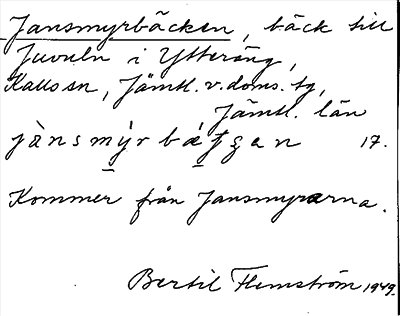 Jansmyrbäcken, bäck till
Juvuln i Ytteräng,
Kalls sn, Jämtl. v. doms. tg,
Jämtl. län
jànsmýrbæ̀ʃʒan 17.
Kommer från Jansmyrarna.
Bertil Flemström 1949.